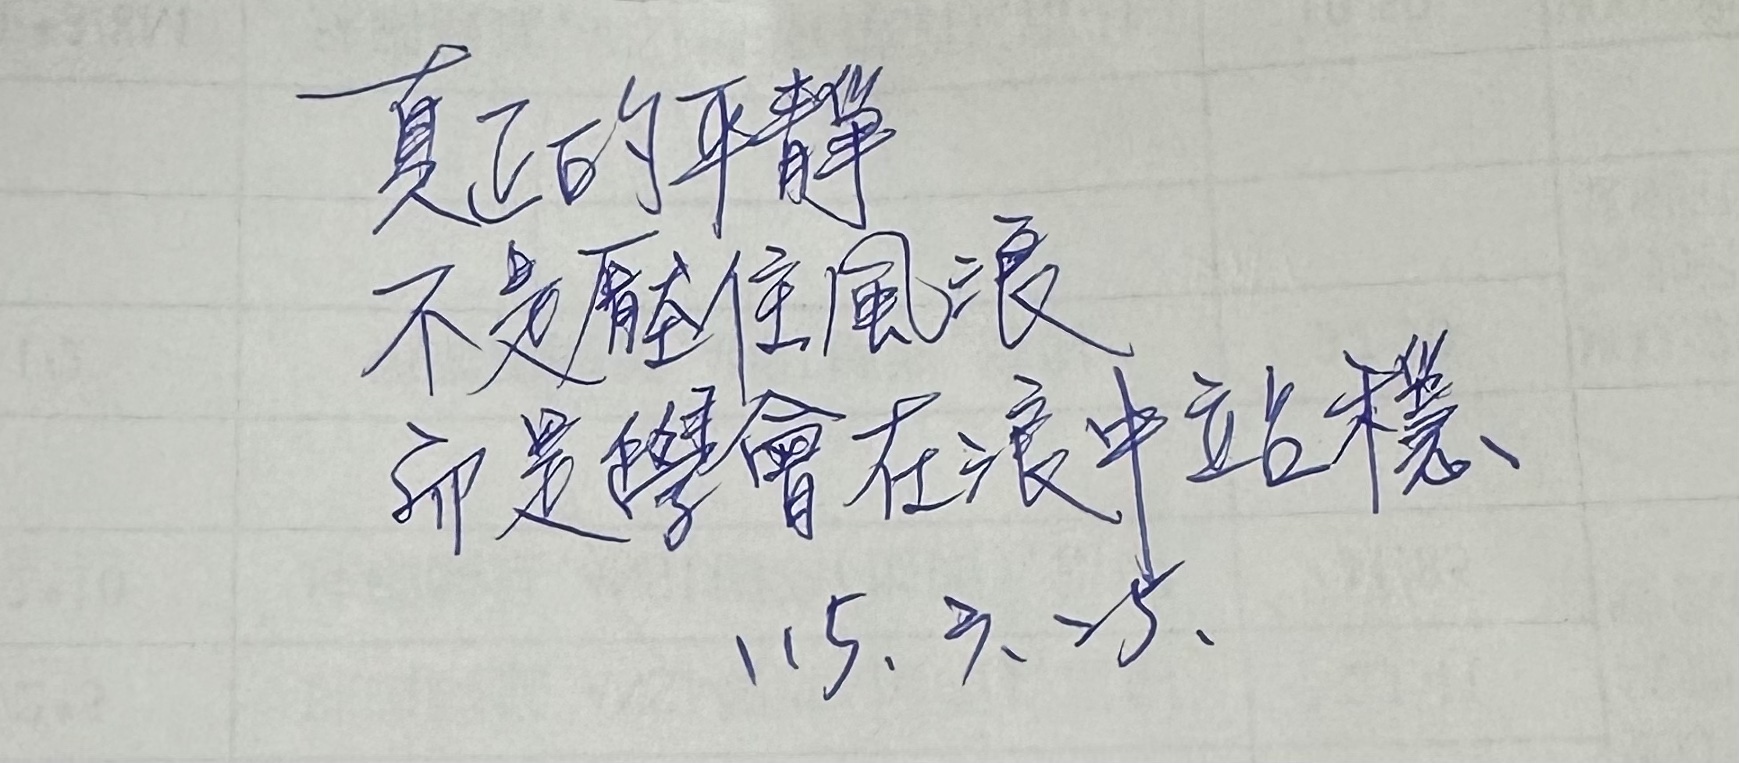 真正的平靜
不是壓住風浪
而是學會在浪中站穩、
115.3.25.